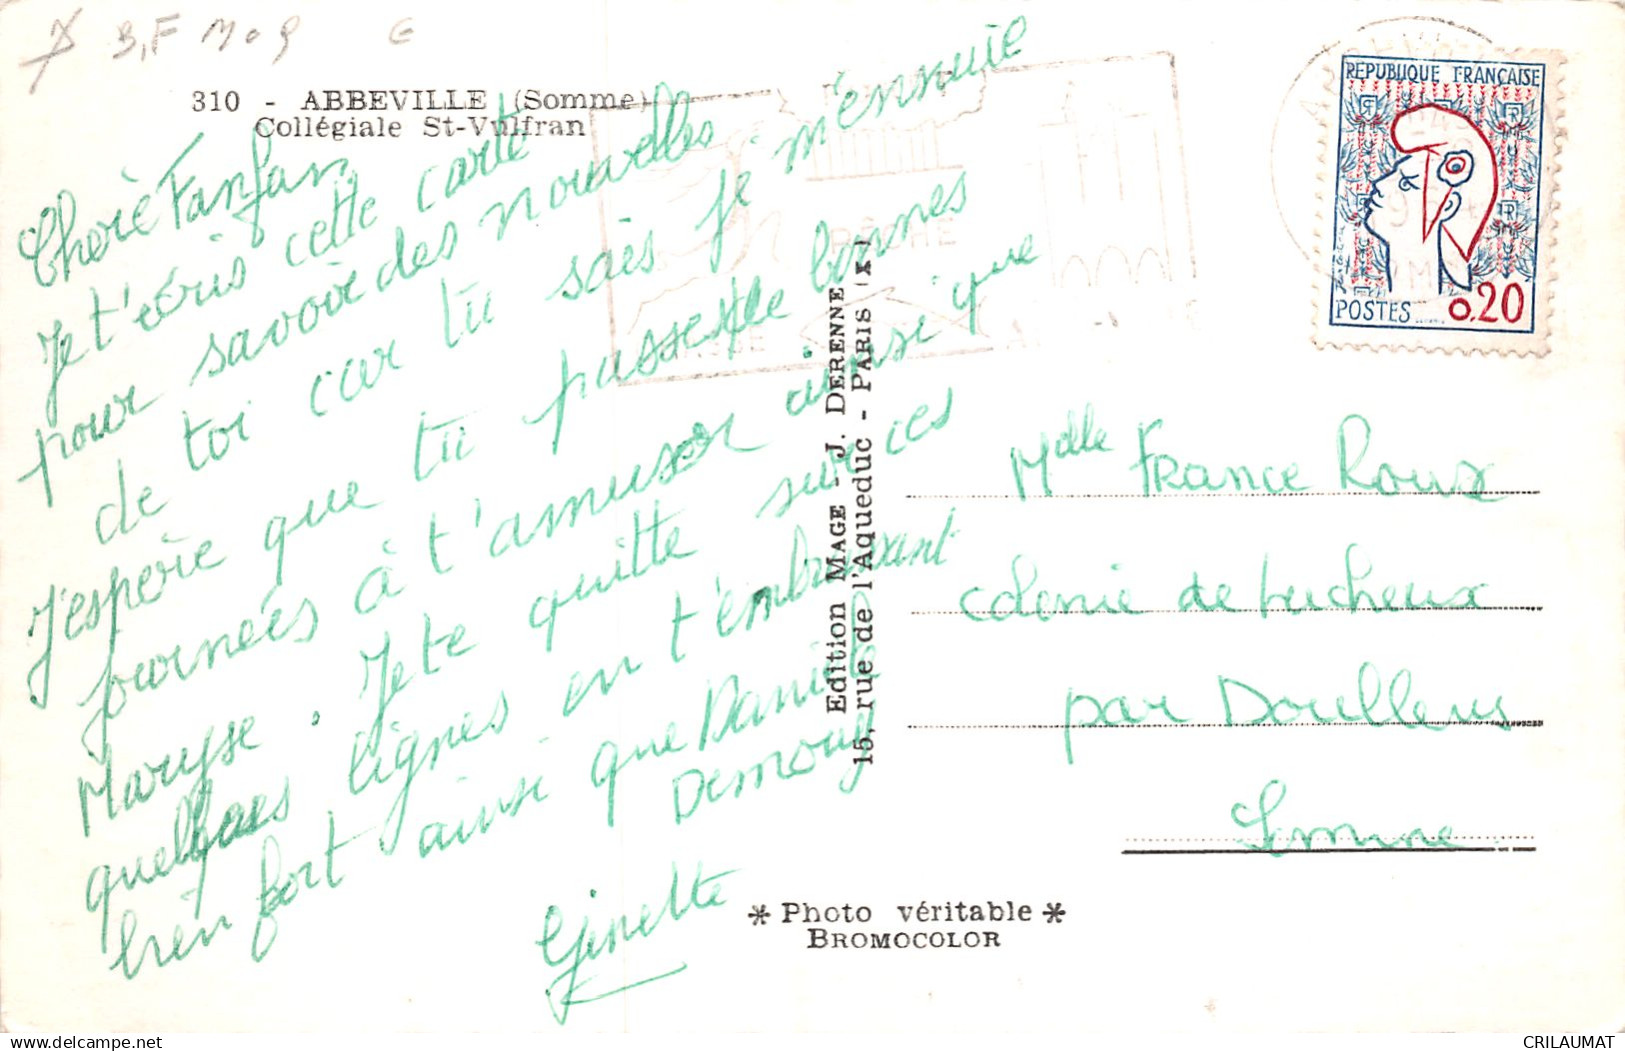 B,F
310 - ABBEVILLE (Somme)
Collégiale St-Vulfran
Cherie Fanfan
Je t'écris cette carte
pour savoir des nouvelles
de toi car tu sais je m'ennuie
J'espère que tu passe de bonnes
journées à t'amuser ainsi que
Maryse. Je te quitte sur ces
quelques lignes en t'embrassant
bien fort ainsi que Daniel
Demouy
Ginette
Edition MAGE - J. DERENNE
15, rue de l'Aqueduc - PARIS (X)
REPUBLIQUE FRANÇAISE
POSTES 0,20
PÊCHE
Melle France Roux
colonie de Lucheux
par Doullens
Somme
* Photo véritable *
BROMOCOLOR
CRILAUMAT